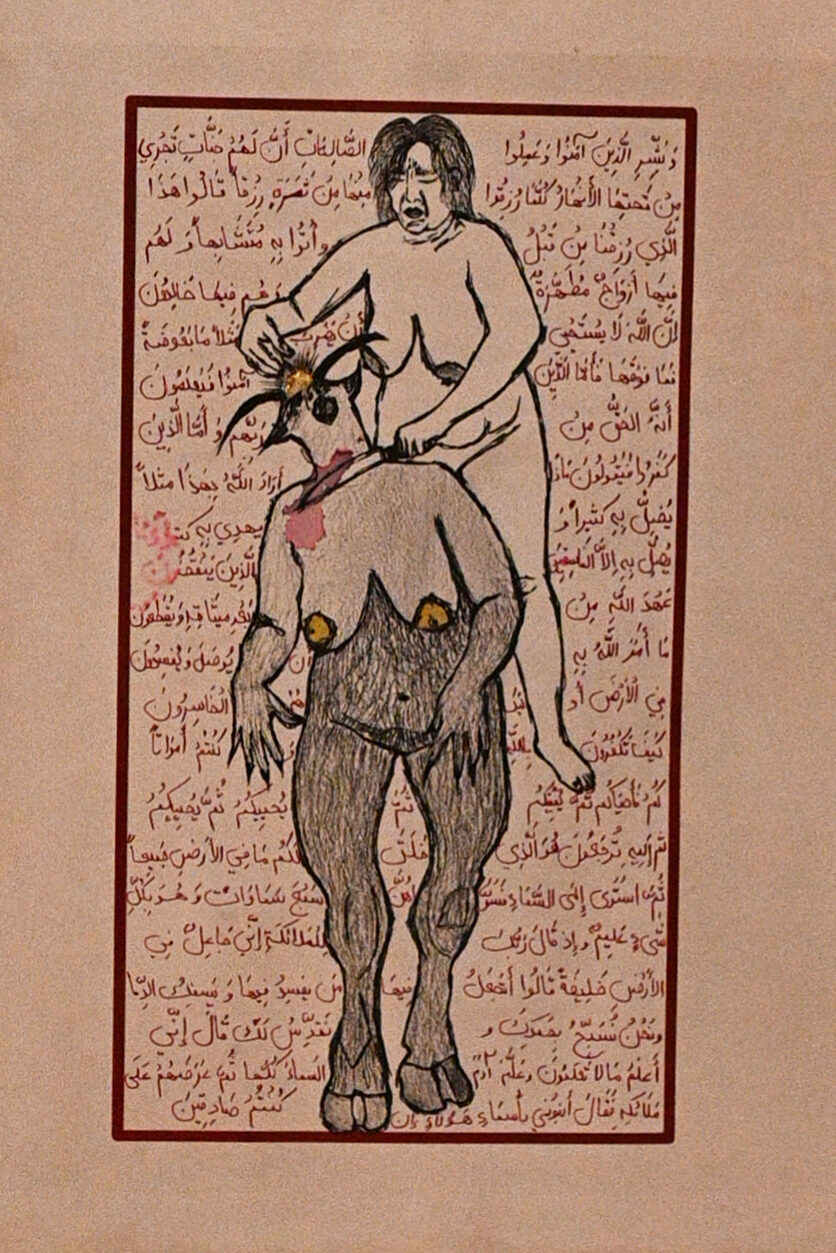 وَبَشِّرِ الَّذِينَ آمَنُوا وَعَمِلُوا الصَّالِحَاتِ أَنَّ لَهُمْ جَنَّاتٍ تَجْرِي
مِن تَحْتِهَا الأَنْهَارُ كُلَّمَا رُزِقُوا مِنْهَا مِن ثَمَرَةٍ رِزْقاً قَالُوا هَذَا
الَّذِي رُزِقْنَا مِن قَبْلُ وأُتُوا بِهِ مُتَشَابِهاً وَ لَهُم
فِيهَا أَزْوَاجٌ مُطَهَّرَةٌ وَهُم فِيهَا خَالِدُونَ
إِنَّ اللَّهَ لَا يَسْتَحْيِ أَن يَضْرِبَ مَثَلاً مَا بَعُوضَةً
فَمَا فَوْقَهَا فَأَمَّا الَّذِينَ آمَنُوا فَيَعْلَمُونَ
أَنَّهُ الحَقُّ مِن رَبِّهِم وَ أَمَّا الَّذِينَ
كَفَرُوا فَيَقُولُونَ مَاذَا أَرَادَ اللَّهُ بِهَذَا مَثَلاً
يُضِلُّ بِهِ كَثِيراً وَ يَهْدِي بِهِ
يُضِلُّ بِهِ إِلاَّ الفَاسِقِينَ الَّذِينَ يَنْقُضُونَ
عَهْدَ اللَّهِ مِن مِيثَاقِهِ وَيَقْطَعُونَ
مَا أَمَرَ اللَّهُ بِهِ أَن يُوصَلَ وَ يُفْسِدُونَ
فِي الأَرْضِ الخَاسِرُونَ
كَيْفَ تَكْفُرُونَ بِاللَّهِ وَ كُنْتُمْ أَمْوَاتاً
فَأَحْيَاكُم ثُمَّ يُمِيتُكُم ثُمَّ يُحْيِيكُم ثُمَّ يُحْيِيكُم
ثُمَّ إِلَيهِ تُرْجَعُونَ هُوَ الَّذِي خَلَقَ لَكُم مَا فِي الأَرْضِ جَمِيعاً
ثُمَّ اسْتَوَى إِلَى السَّمَاءِ سَبْعَ سَمَاوَاتٍ وَ هُوَ بِكُلِّ
شَيْءٍ عَلِيمٌ وَ إِذ قَالَ رَبُّكَ لِلْمَلَائِكَةِ إِنِّي جَاعِلٌ فِي
الأَرْضِ خَلِيفَةً قَالُوا أَتَجْعَلُ فِيهَا مَن يُفْسِدُ فِيهَا وَ يَسْفِكُ الدِّمَا
وَنَحْنُ نُسَبِّحُ بِحَمْدِكَ وَ نُقَدِّسُ لَكَ قَالَ إِنِّي
أَعْلَمُ مَا لَا تَعْلَمُونَ وَعَلَّمَ آدَمَ كُلَّهَا ثُمَّ عَرَضَهُمْ عَلَى
فَقَالَ أَنْبِئُونِي بِأَسْمَاءِ هَؤُلَاءِ إِن كُنْتُمْ صَادِقِينَ